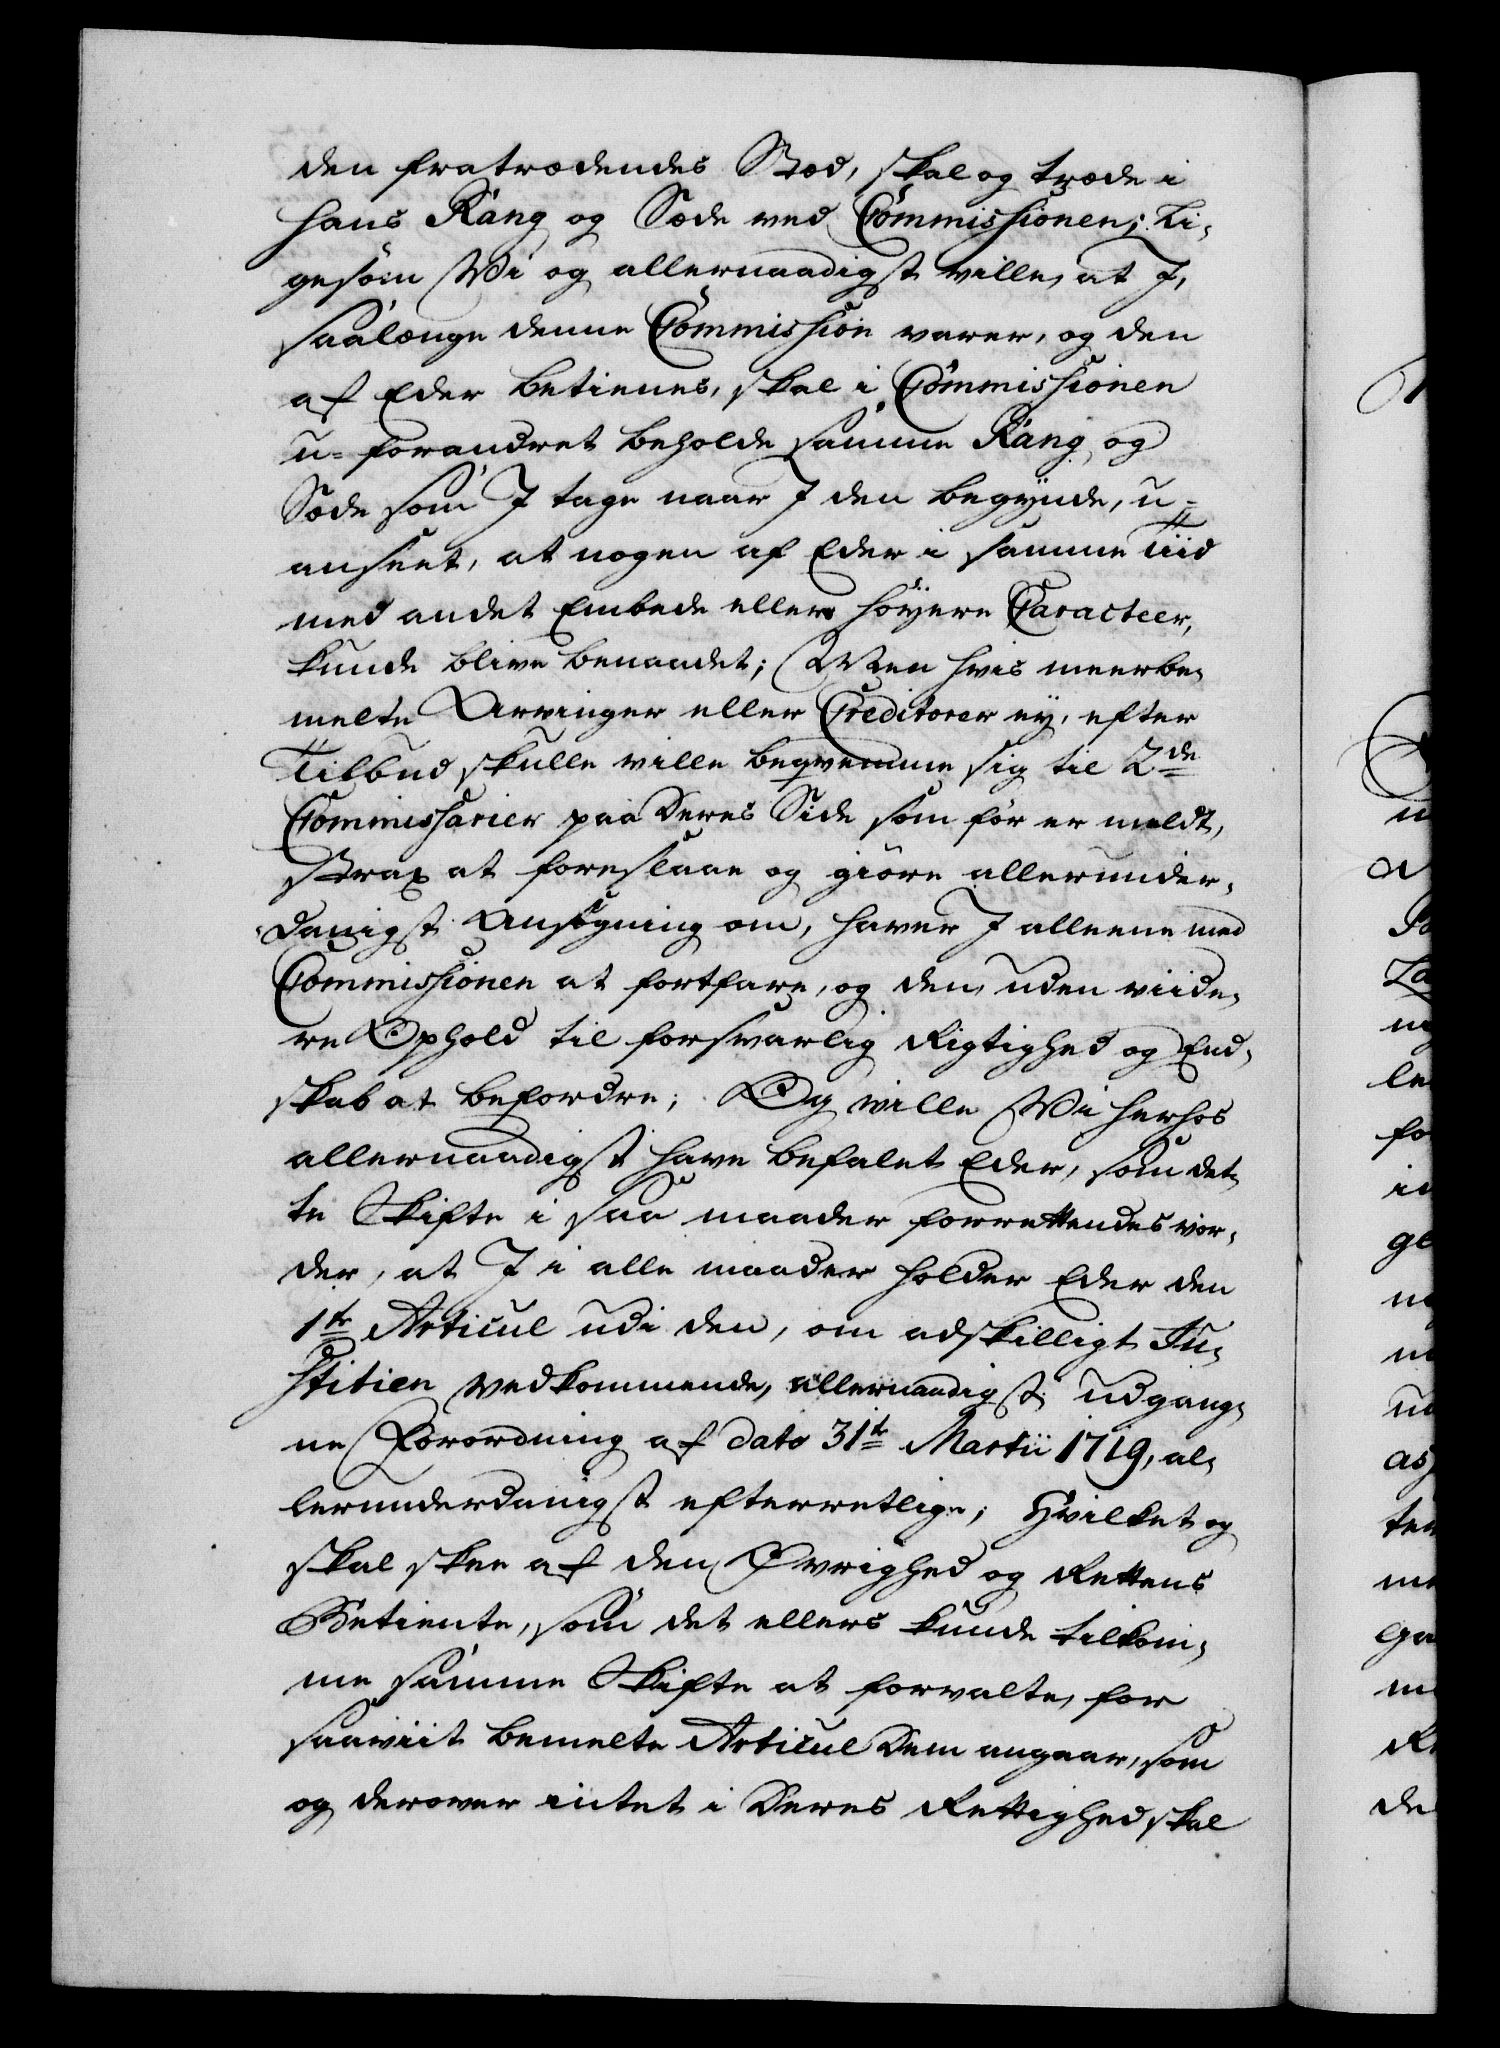 den fratrædendes Stæd, skal og træde i
hans Rang og Sæde ved Commissionen; Li-
gesom Wi og allernaadigst ville, at I,
saalænge denne Commission varer, og den
af Eder betienes, skal i Commissionen
u-forandret beholde samme Rang og
Sæde som I tage naar I den begynde, u-
anseet, at nogen af Eder i samme Tiid
med andet Embede eller höyere Caracteer,
kunde blive benaadet; Men hvis meerbe-
melte Arvinger eller Creditorer ey, efter
Tilbud skulle ville beqvemme sig til 2de
Commissarier paa Deres Side som för er meldt,
strax at foreslaae og giöre allerunder-
danigst Ansögning om, haver I alleene med
Commissionen at fortfare, og den, uden viide-
re Ophold til forsvarlig Rigtighed og End-
skab at befordre; Og ville Wi herhos
allernaadigst have befalet Eder, som det-
te Skifte i saa maader forrettendes vor-
der, at I i alle maader holder Eder den
1te Articul udi den, om adskilligt Ju-
stitien vedkommende, allernaadigst udgang-
ne Forordning af dato 31te Martii 1719, al-
lerunderdanigst efterretlige; Hvilket og
skal skee af den Øvrighed og Rettens
Betiente, som det ellers kunde tilkom-
me samme Skifte at forvalte, for
saaviit bemelte Articul Dem angaar, som
og derover intet i Deres Rettighed skal